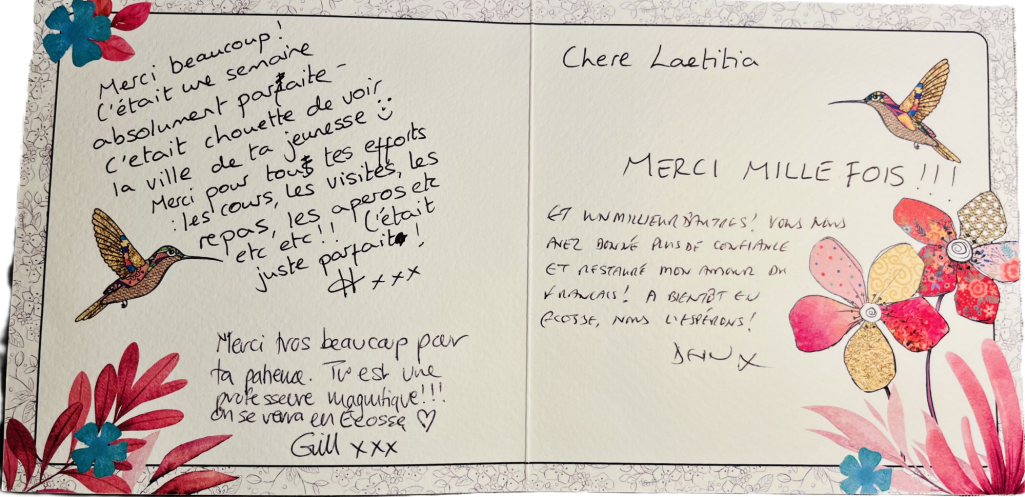 Merci beaucoup!
C'était une semaine
absolument parfaite -
c'etait chouette de voir
la ville de ta jeunesse
Merci pour tous tes efforts
: les cours, les visites, les
repas, les aperos etc
etc etc!! C'était
juste parfait!
xxx
Merci tros beaucoup pour
ta patience. Tu est une
professeure magnifique!!!
On se verra en Écosse ♡
Gill xxx
Chere Laetitia
MERCI MILLE FOIS!!!
ET UN MILLIEUR D'AUTRES! VOUS NOUS
AVEZ DONNÉ PLUS DE CONFIANCE
ET RESTAURÉ MON AMOUR DU
FRANCAIS! A BIENTÔT EN
ÉCOSSE, NOUS L'ESPÉRONS!
X